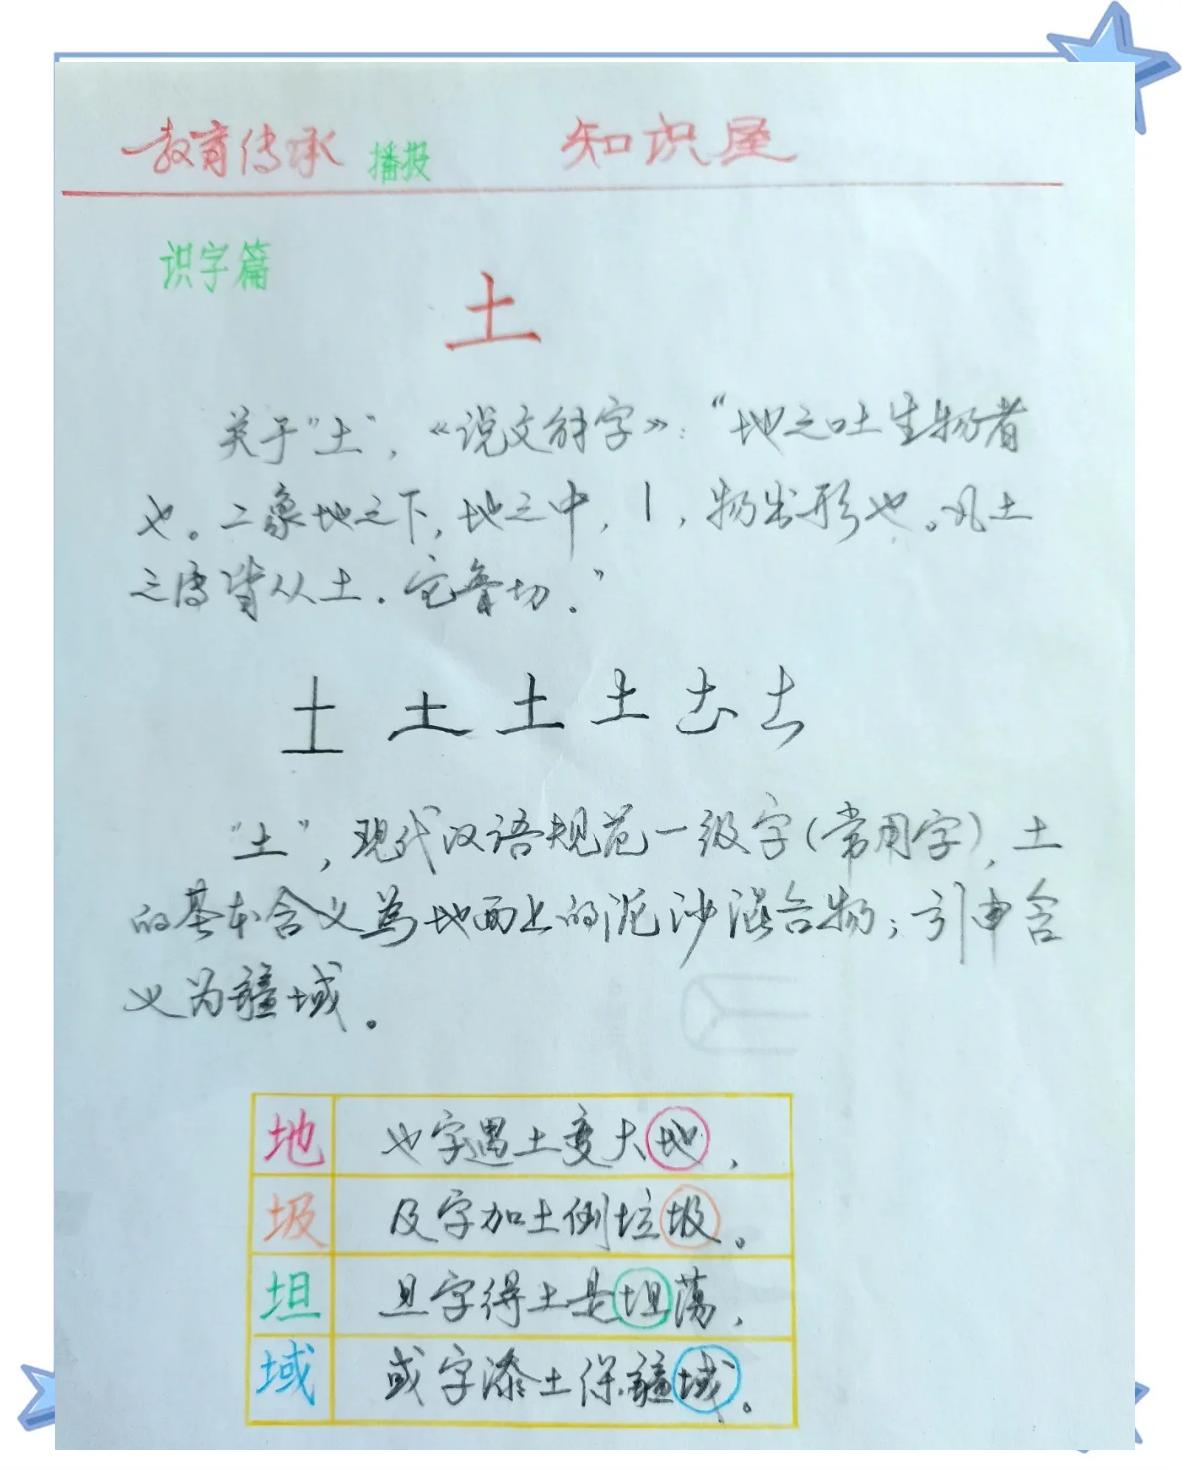 教育传承 播报 知识屋
识字篇
土
关于"土",《说文解字》:"地之吐生物者
也。二象地之下,地之中,丨,物出形也。凡土
之属皆从土。它鲁切。"
土 土 土 土 土 土
"土",现代汉语规范一级字(常用字),土
的基本含义為地面上的泥沙混合物;引申含
义为疆域。
地 也字遇土变大地,
圾 及字加土倒垃圾。
坦 旦字得土是坦荡,
域 或字添土保疆域。